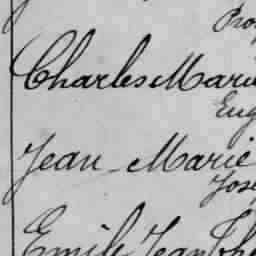 Pro
Charles Marie
Eug
Jean-Marie
Jose
Emile Jean The